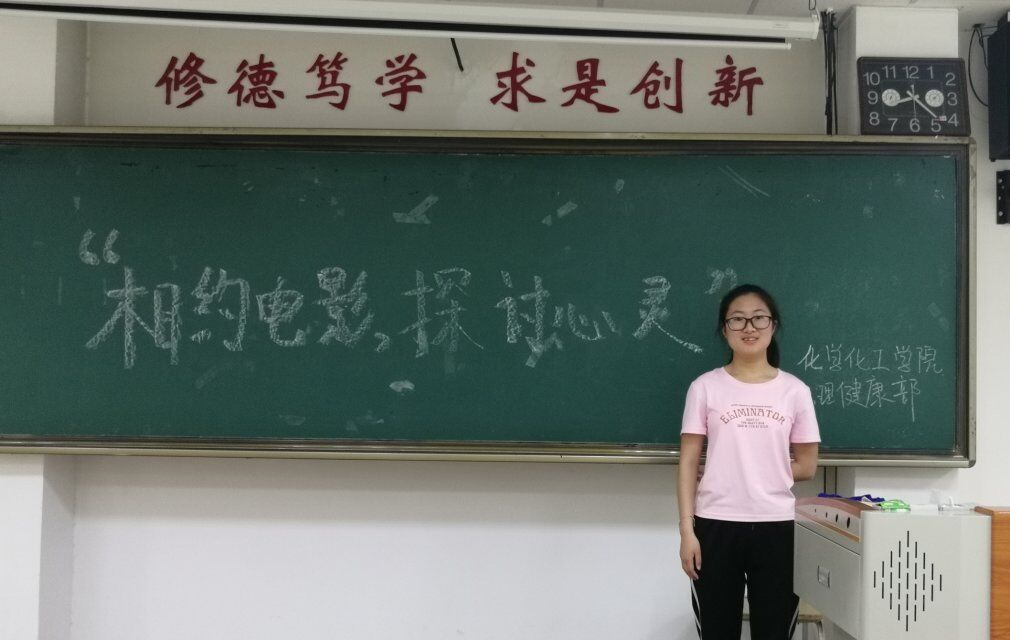 修德笃学 求是创新
“相约电影,探讨心灵”
化学化工学院
理健康部
ELIMINATOR
10 11 12 1 2 3 4 5 6 7 8 9